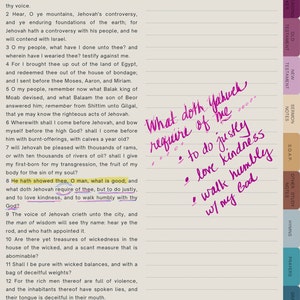 thy voice.
2 Hear, O ye mountains, Jehovah's controversy,
and ye enduring foundations of the earth; for
Jehovah hath a controversy with his people, and he
will contend with Israel.
3 O my people, what have I done unto thee? and
wherein have I wearied thee? testify against me.
4 For I brought thee up out of the land of Egypt,
and redeemed thee out of the house of bondage;
and I sent before thee Moses, Aaron, and Miriam.
5 O my people, remember now what Balak king of
Moab devised, and what Balaam the son of Beor
answered him; remember from Shittim unto Gilgal,
that ye may know the righteous acts of Jehovah.
6 Wherewith shall I come before Jehovah, and bow
myself before the high God? shall I come before
him with burnt-offerings, with calves a year old?
7 will Jehovah be pleased with thousands of rams,
or with ten thousands of rivers of oil? shall I give
my first-born for my transgression, the fruit of my
body for the sin of my soul?
8 He hath showed thee, O man, what is good; and
what doth Jehovah require of thee, but to do justly,
and to love kindness, and to walk humbly with thy
God?
9 The voice of Jehovah crieth unto the city, and
the man of wisdom will see thy name: hear ye the
rod, and who hath appointed it.
10 Are there yet treasures of wickedness in the
house of the wicked, and a scant measure that is
abominable?
11 Shall I be pure with wicked balances, and with a
bag of deceitful weights?
12 For the rich men thereof are full of violence,
and the inhabitants thereof have spoken lies, and
their tongue is deceitful in their mouth.
What doth Yahweh
require of me
• to do justly
• love kindness
• walk humbly
w/ my God
OLD
TESTAMENT
NEW
TESTAMENT
SERMON
NOTES
S.O.A.P.
HYMNS
PRAYERS